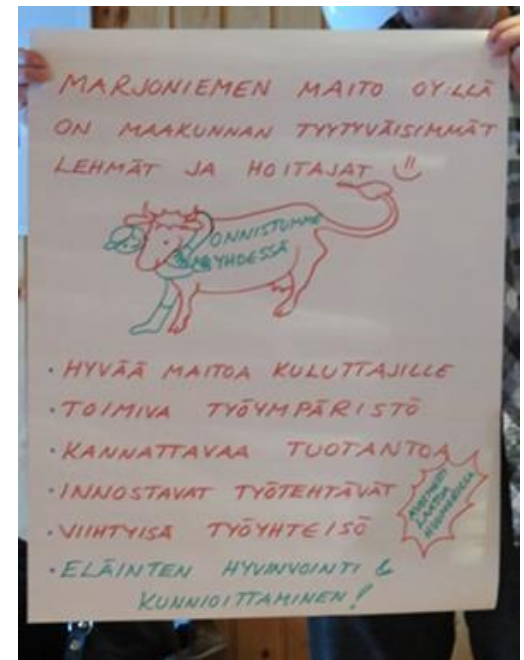 MARJONIEMEN MAITO OY:LLÄ
ON MAAKUNNAN TYYTYVÄISIMMÄT
LEHMÄT JA HOITAJAT
ONNISTUMME
YHDESSÄ
• HYVÄÄ MAITOA KULUTTAJILLE
• TOIMIVA TYÖYMPÄRISTÖ
• KANNATTAVAA TUOTANTOA
• INNOSTAVAT TYÖTEHTÄVÄT
• VIIHTYISÄ TYÖYHTEISÖ
HUUMORILLA
• ELÄINTEN HYVINVOINTI &
KUNNIOITTAMINEN!